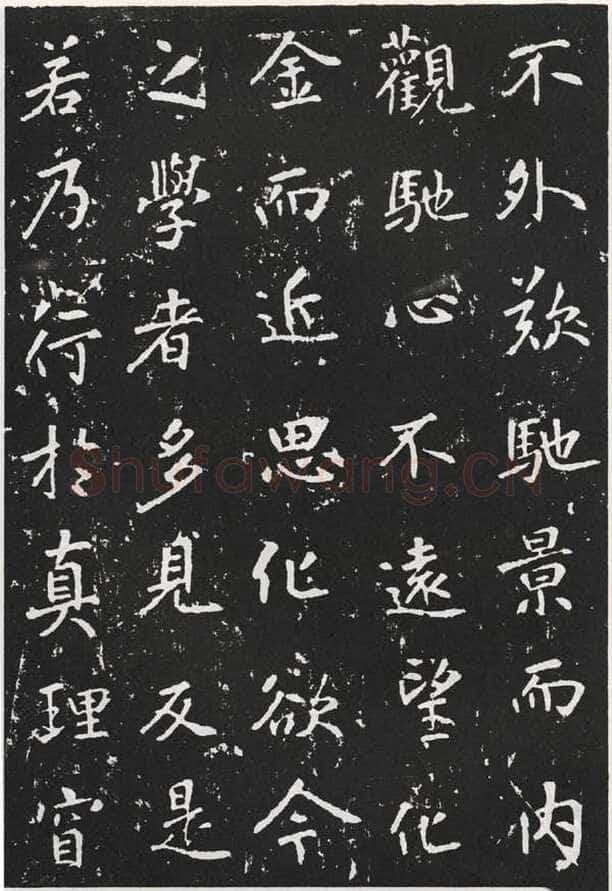 不外欻馳景而內
觀馳心不遠望化
金而近思化欲今
之學者多見反是
若乃於真理窅
Shufawang.CN